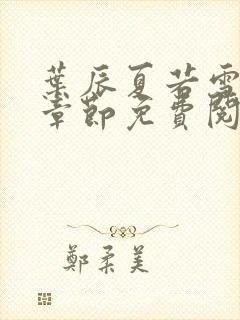 葉辰夏若雪
章節免費閱
鄭柔美